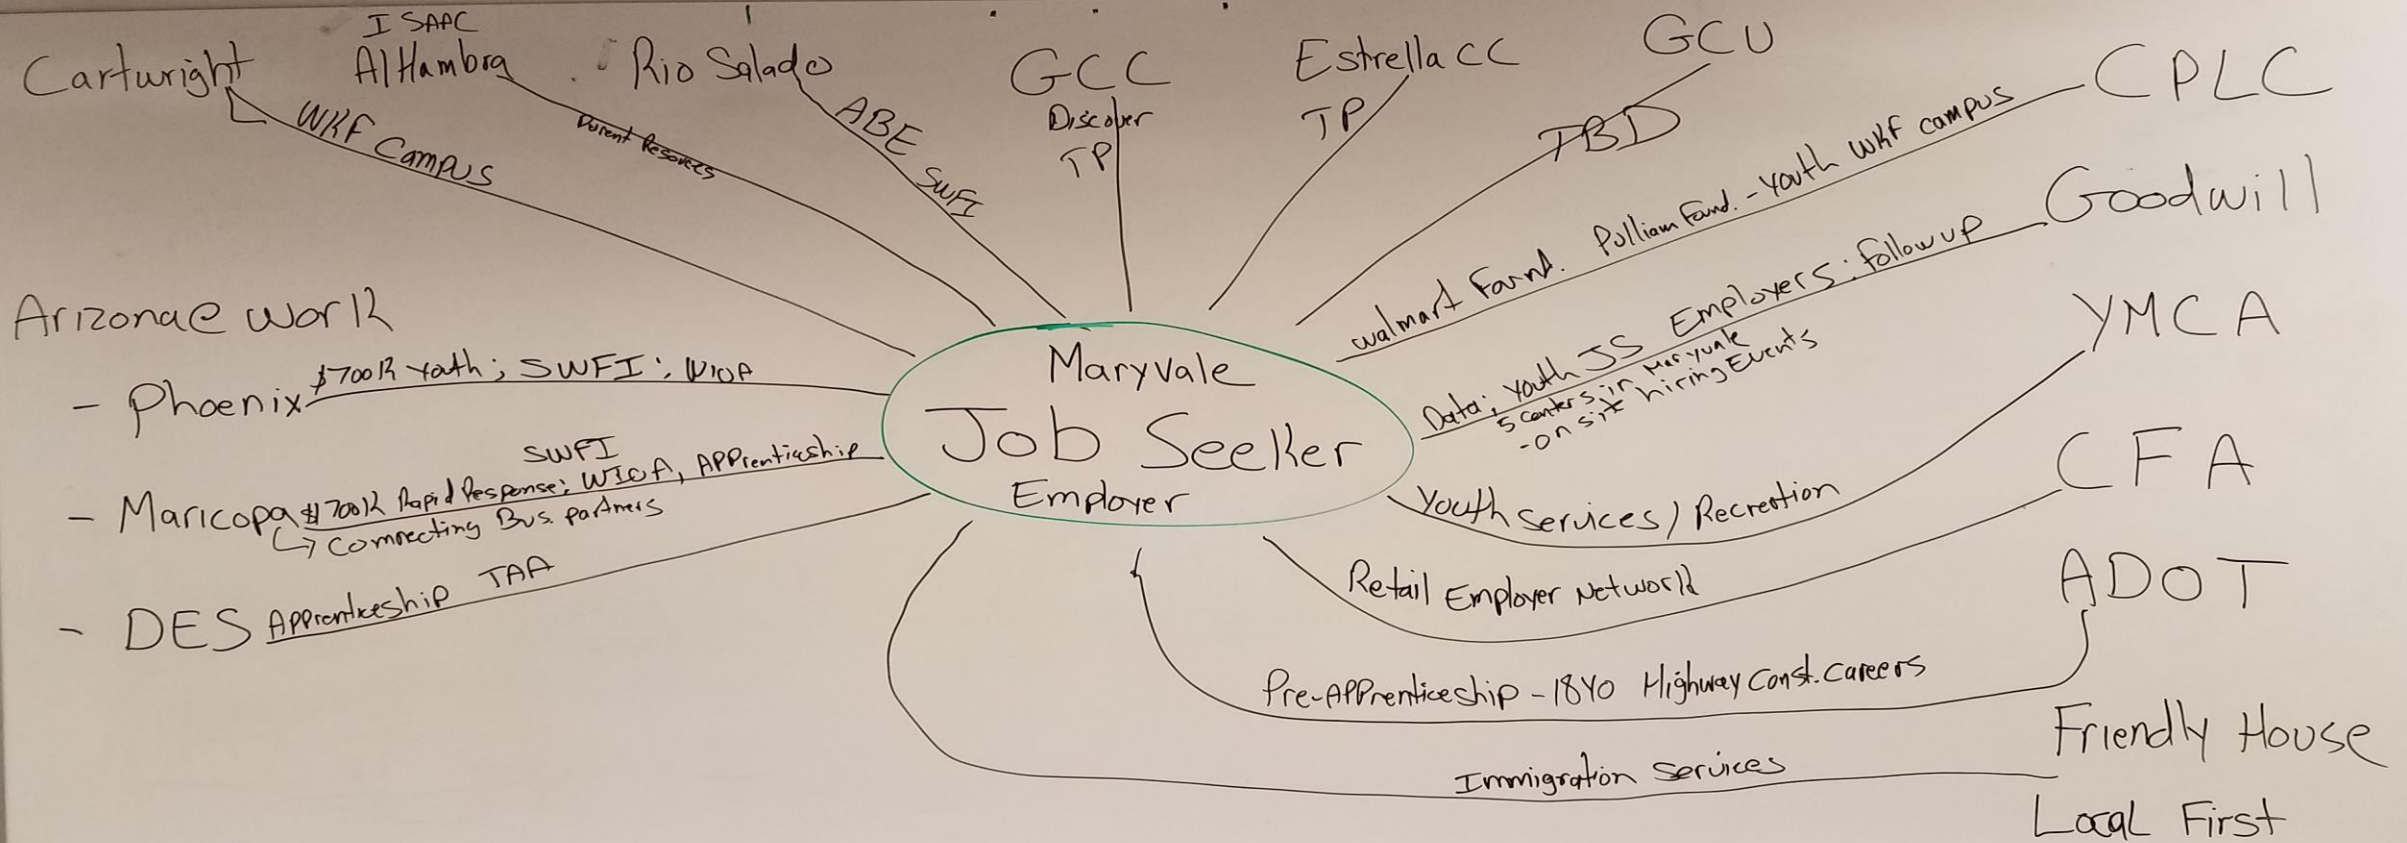 Cartwright
WKF Campus
ISAAC
AlHambra
Parent Resources
Rio Salado
ABE SWFI
GCC
Discover
TP
Estrella CC
TP
GCU
TBD
CPLC
Walmart Found. Pulliam Found. - Youth WKF campus
Goodwill
Data; Youth JS Employers: Follow up
5 Centers in Maryvale
- on site hiring Events
YMCA
Youth Services / Recreation
CFA
Retail Employer Network
ADOT
Pre-Apprenticeship - 18YO Highway Const. Careers
Friendly House
Immigration Services
Local First
Arizona@Work
- Phoenix $700K Youth; SWFI; WIOA
SWFI
- Maricopa $700K Rapid Response; WIOA, Apprenticeship
↳ Connecting Bus. partners
- DES Apprenticeship TAA
Maryvale
Job Seeker
Employer